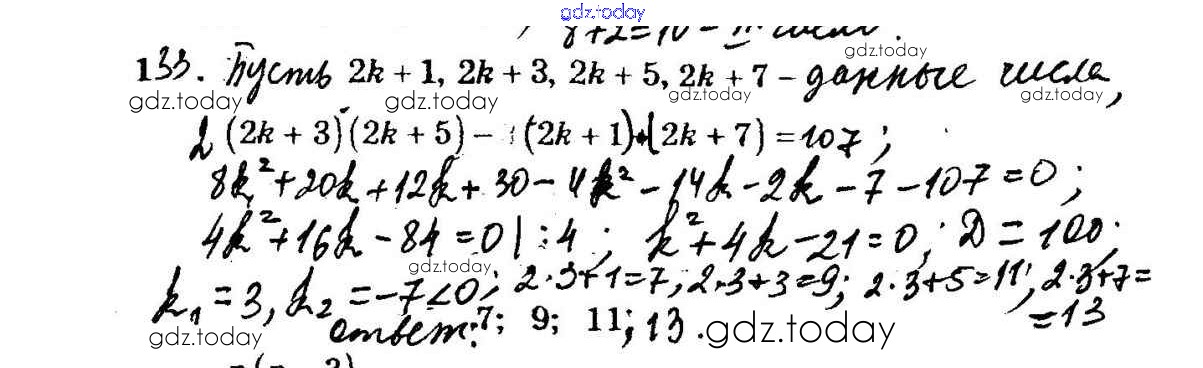 gdz.today
133. Пусть 2k + 1, 2k + 3, 2k + 5, 2k + 7 – данные числа,
gdz.today
gdz.today gdz.today gdz.today gdz.today
2 (2k + 3)(2k + 5) – (2k + 1)·(2k + 7) = 107;
8k² + 20k + 12k + 30 – 4k² – 14k – 2k – 7 – 107 = 0;
4k² + 16k – 84 = 0 | : 4; k² + 4k – 21 = 0; D = 100;
gdz.today gdz.today
k₁ = 3, k₂ = –7 < 0; 2·3+1=7; 2·3+3=9; 2·3+5=11; 2·3+7=
=13
ответ: 7; 9; 11; 13.
gdz.today gdz.today